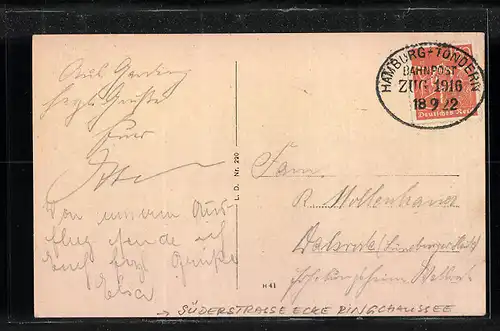 Aus Garding
herzl. Grüße
Euer
Von unserem Aus-
flug sende ich
Euch herzl. Grüße
Elsa
L. D. Nr. 290
H 41
HAMBURG-TONDERN
BAHNPOST
ZUG 1916
18 9 22
Deutsches Reich
Fam.
R. Mollenhauer
(Lüneburger Heide)
→ SÜDERSTRASSE ECKE RINGCHAUSSEE